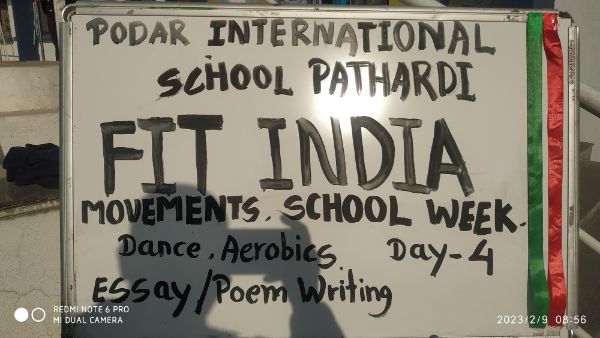 PODAR INTERNATIONAL
SCHOOL PATHARDI
FIT INDIA
MOVEMENTS. SCHOOL WEEK.
Dance, Aerobics Day-4
Essay/Poem Writing
REDMI NOTE 6 PRO
MI DUAL CAMERA
2023/2/9 08:56